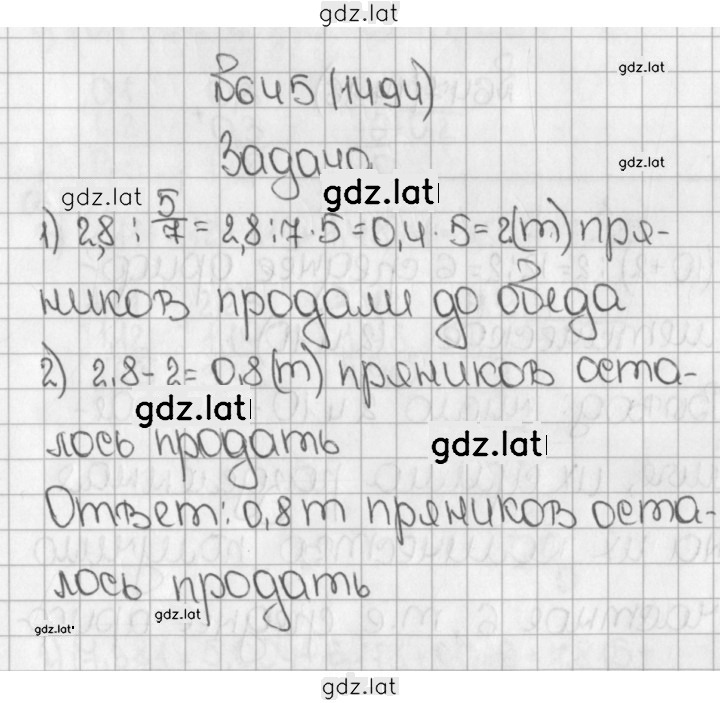 gdz.lat
№645 (1494)
gdz.lat
Задача
gdz.lat
gdz.lat
gdz.lat
1) 2,8 : 5/7 = 2,8 : 7 · 5 = 0,4 · 5 = 2 (т) пря-
ников продали до обеда
2) 2,8 - 2 = 0,8 (т) пряников оста-
gdz.lat
лось продать
gdz.lat
Ответ: 0,8 т пряников оста-
лось продать
gdz.lat
gdz.lat
gdz.lat